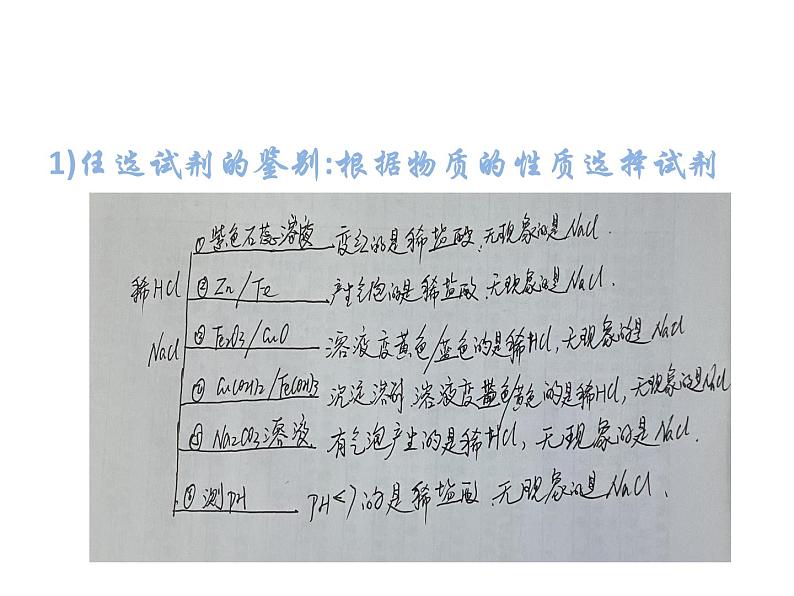 1)任选试剂的鉴别:根据物质的性质选择试剂
①紫色石蕊溶液 变红的是稀盐酸,无现象的是NaCl.
稀HCl ②Zn/Fe 产生气泡的是稀盐酸,无现象的是NaCl.
NaCl ③Fe2O3/CuO 溶液变黄色/蓝色的是稀HCl,无现象的是NaCl
④Cu(OH)2/Fe(OH)3 沉淀溶解 溶液变蓝色/黄色的是稀HCl,无现象的是NaCl
⑤Na2CO3溶液 有气泡产生的是稀HCl,无现象的是NaCl.
⑥测pH pH<7的是稀盐酸,无现象的是NaCl.